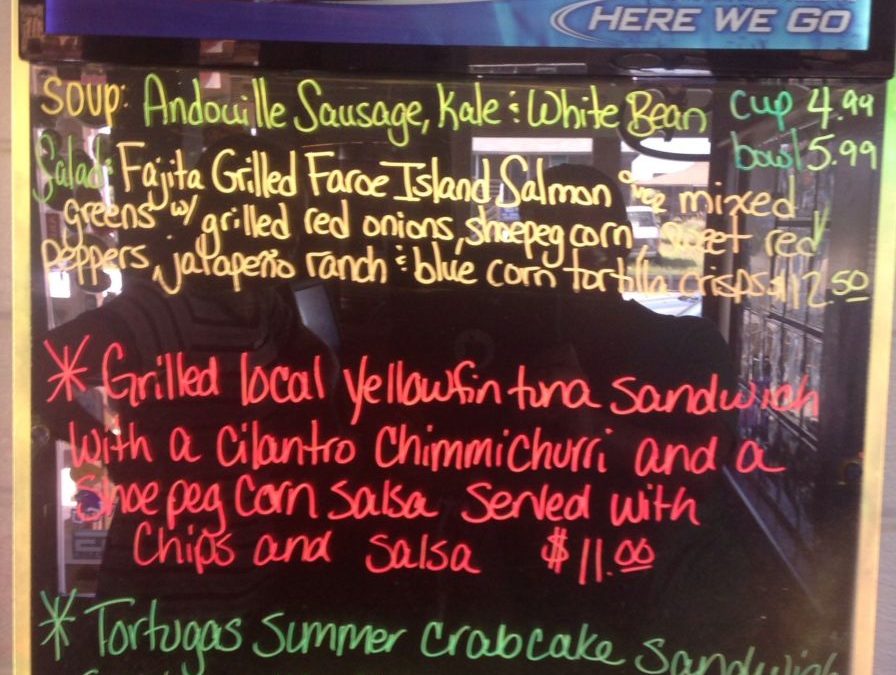 HERE WE GO
SOUP: Andouille Sausage, Kale & White Bean cup 4.99
bowl 5.99
Salad: Fajita Grilled Faroe Island Salmon over mixed
greens w/ grilled red onions, shoepeg corn, sweet red
peppers, jalapeño ranch & blue corn tortilla crisps $12.50
* Grilled local yellowfin tuna sandwich
with a cilantro Chimmichurri and a
Shoepeg Corn Salsa Served with
Chips and salsa $11.00
* Tortugas Summer Crabcake Sandwich